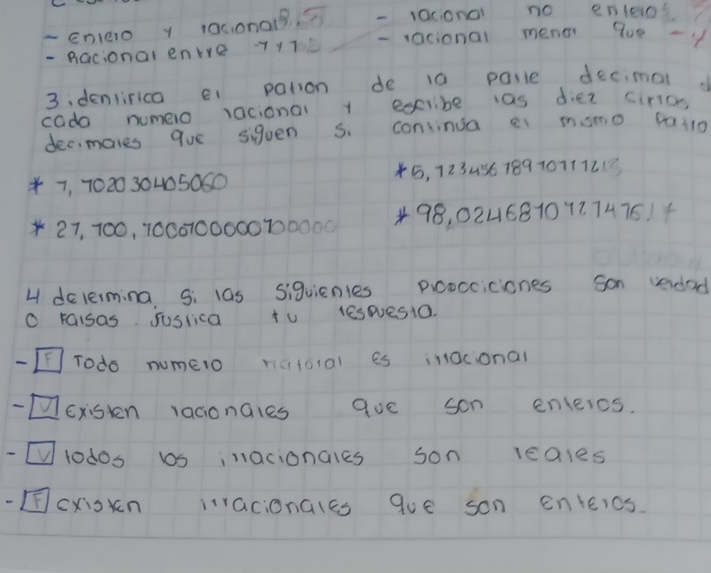 - Entero y racional
- racional no entero
- Racional entre 7 y 7
- racional menor que -
3. identifica el patron de la parte decimal d
cada numero racional y escribe las diez cifras
decimales que siguen si continua el mismo patro
* 7, 702030405060
* 5, 123456789101112
* 27, 100, 1000100000100000
* 98,0246810121416
4 determina si las siguientes proposiciones son verdad
o falsas Justica tu respuesta.
- F Todo numero natural es irracional
- V existen racionales que son enteros.
- V todos los irracionales son reales
- F existen irracionales que son enteros.